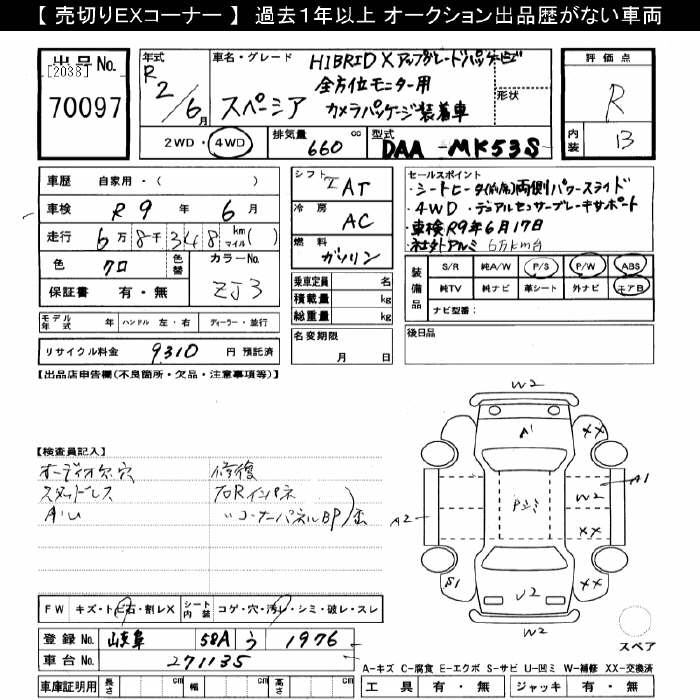 【 売切りEXコーナー 】 過去1年以上 オークション出品歴がない車両
出品 No.
[2038]
70097
年式
R 2/6月
車名・グレード
HIBRID X アップグレードパッケージ
全方位モニター用
スペーシア カメラパッケージ装着車
形状
2WD ・ 4WD
排気量 660 cc
型式 DAA - MK53S
評価点
R
内装 B
車歴 自家用・( )
車検 R 9 年 6 月
走行 6万 8千 348 km マイル( )
色 クロ
色替
カラーNo. ZJ3
保証書 有・無
シフト I AT
冷房 AC
燃料 ガソリン
乗車定員 名
積載量 kg
総重量 kg
セールスポイント
・シートヒーター(前席)両側パワースライド
・4WD ・デュアルセンサーブレーキサポート
・車検R9年6月17日
・社外アルミ 6万km台
装備品
S/R 純A/W P/S P/W ABS
純TV 純ナビ 革シート 外ナビ エアB
ナビ型番:
モデル年式 年 ハンドル 左・右 ディーラー・並行
リサイクル料金 9310 円 預託済
名変期限 月 日
後日品
【出品店申告欄(不良箇所・欠品・注意事項等)】
【検査員記入】
オーディオ欠 穴 修復
スタッドレス 右Rインパネ
A・U 〃コーナーパネルBP 歪
W2
A1
XX
XX
A1
W2
Pシミ
A2
XX
S1
U2
XX
W2
FW キズ・トビ石・割レX シート内装 コゲ・穴・汚レ・シミ・破レ・スレ
登録 No. 岐阜 58A う 1976
車台 No. 271135
車庫証明用 長さ cm 幅 cm 高さ cm
スペア
A-キズ C-腐食 E-エクボ S-サビ U-凹ミ W-補修 XX-交換済
工具 有・無 ジャッキ 有・無